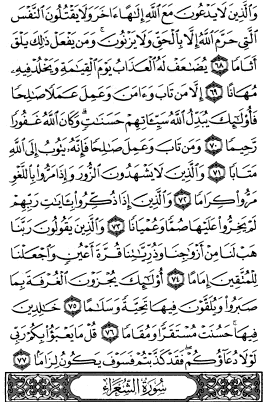 وَالَّذِينَ لَا يَدْعُونَ مَعَ اللَّهِ إِلَٰهًا ءَاخَرَ وَلَا يَقْتُلُونَ النَّفْسَ
الَّتِي حَرَّمَ اللَّهُ إِلَّا بِالْحَقِّ وَلَا يَزْنُونَ ۚ وَمَن يَفْعَلْ ذَٰلِكَ يَلْقَ
أَثَامًا ٦٨ يُضَٰعَفْ لَهُ الْعَذَابُ يَوْمَ الْقِيَٰمَةِ وَيَخْلُدْ فِيهِ
مُهَانًا ٦٩ إِلَّا مَن تَابَ وَءَامَنَ وَعَمِلَ عَمَلًا صَٰلِحًا
فَأُولَٰئِكَ يُبَدِّلُ اللَّهُ سَيِّـَٔاتِهِمْ حَسَنَٰتٍ ۗ وَكَانَ اللَّهُ غَفُورًا
رَّحِيمًا ٧٠ وَمَن تَابَ وَعَمِلَ صَٰلِحًا فَإِنَّهُ يَتُوبُ إِلَى اللَّهِ
مَتَابًا ٧١ وَالَّذِينَ لَا يَشْهَدُونَ الزُّورَ وَإِذَا مَرُّوا بِاللَّغْوِ
مَرُّوا كِرَامًا ٧٢ وَالَّذِينَ إِذَا ذُكِّرُوا بِـَٔايَٰتِ رَبِّهِمْ
لَمْ يَخِرُّوا عَلَيْهَا صُمًّا وَعُمْيَانًا ٧٣ وَالَّذِينَ يَقُولُونَ رَبَّنَا
هَبْ لَنَا مِنْ أَزْوَٰجِنَا وَذُرِّيَّٰتِنَا قُرَّةَ أَعْيُنٍ وَاجْعَلْنَا
لِلْمُتَّقِينَ إِمَامًا ٧٤ أُولَٰئِكَ يُجْزَوْنَ الْغُرْفَةَ بِمَا
صَبَرُوا وَيُلَقَّوْنَ فِيهَا تَحِيَّةً وَسَلَٰمًا ٧٥ خَٰلِدِينَ
فِيهَا ۚ حَسُنَتْ مُسْتَقَرًّا وَمُقَامًا ٧٦ قُلْ مَا يَعْبَؤُا بِكُمْ رَبِّي
لَوْلَا دُعَاؤُكُمْ ۖ فَقَدْ كَذَّبْتُمْ فَسَوْفَ يَكُونُ لِزَامًا ٧٧
سُورَةُ الشُّعَرَاءِ